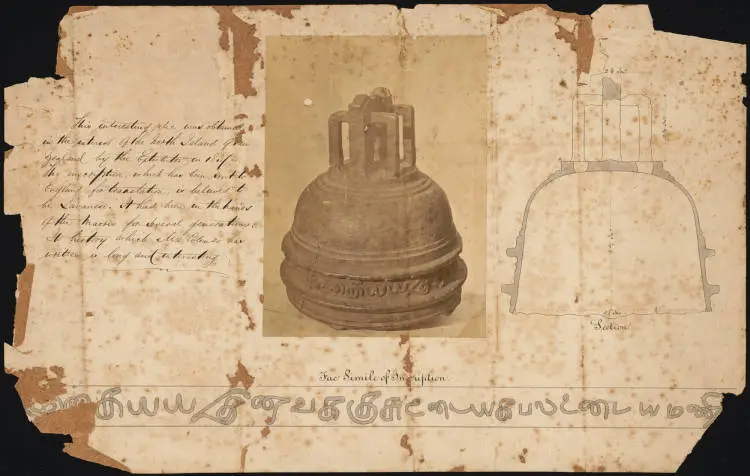 This interesting relic was obtained
in the interior of the North Island of New
Zealand by the Exhibitor in
The inscription, which has been sent to
England for translation, is believed to
be Javanese. It had been in the hands
of the Maories for several generations
A history which Mr has
written is long and interesting
Section
Fac Simile of Inscription
முகையதீனவககுசுடையகபலஉடையமணி